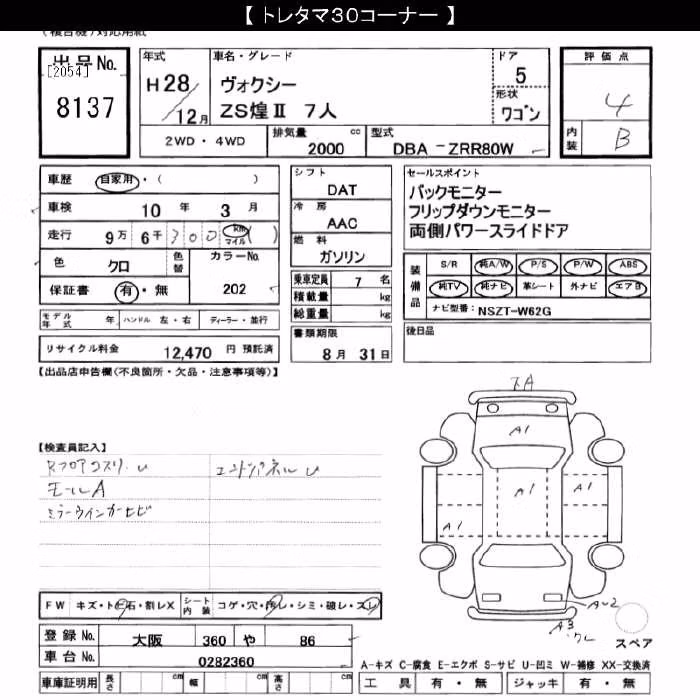 【 トレタマ30コーナー 】
(複合機)対応用紙
出品No.
[2054]
8137
年式
H28/12月
車名・グレード
ヴォクシー
ZS煌Ⅱ 7人
ドア
5
形状
ワゴン
2WD・4WD
排気量 cc
2000
型式
DBA - ZRR80W
評価点
4
内装
B
車歴 自家用・( )
車検 10年 3月
走行 9万 6千 300 km マイル ( )
色 クロ 色替
カラーNo.
202
保証書 有・無
モデル年式 年 ハンドル 左・右 ディーラー・並行
リサイクル料金 12,470 円 預託済
シフト
DAT
冷房
AAC
燃料
ガソリン
乗車定員 7 名
積載量 kg
総重量 kg
書類期限
8月 31日
セールスポイント
バックモニター
フリップダウンモニター
両側パワースライドドア
装備品
S/R 純A/W P/S P/W ABS
純TV 純ナビ 革シート 外ナビ エアB
ナビ型番: NSZT-W62G
後日品
【出品店申告欄(不良箇所・欠品・注意事項等)】
【検査員記入】
モールA
ミラーウインカーヒビ
エンドパネルU
A1
A1
A1
A1
AU2
A3
スペア
FW キズ・トビ石・割レX
シート内装 コゲ・穴・汚レ・シミ・破レ・スレ
登録No. 大阪 360 や 86
車台No. 0282360
車庫証明用 長さ cm 幅 cm 高さ cm
A-キズ C-腐食 E-エクボ S-サビ U-凹ミ W-補修 XX-交換済
工具 有・無 ジャッキ 有・無